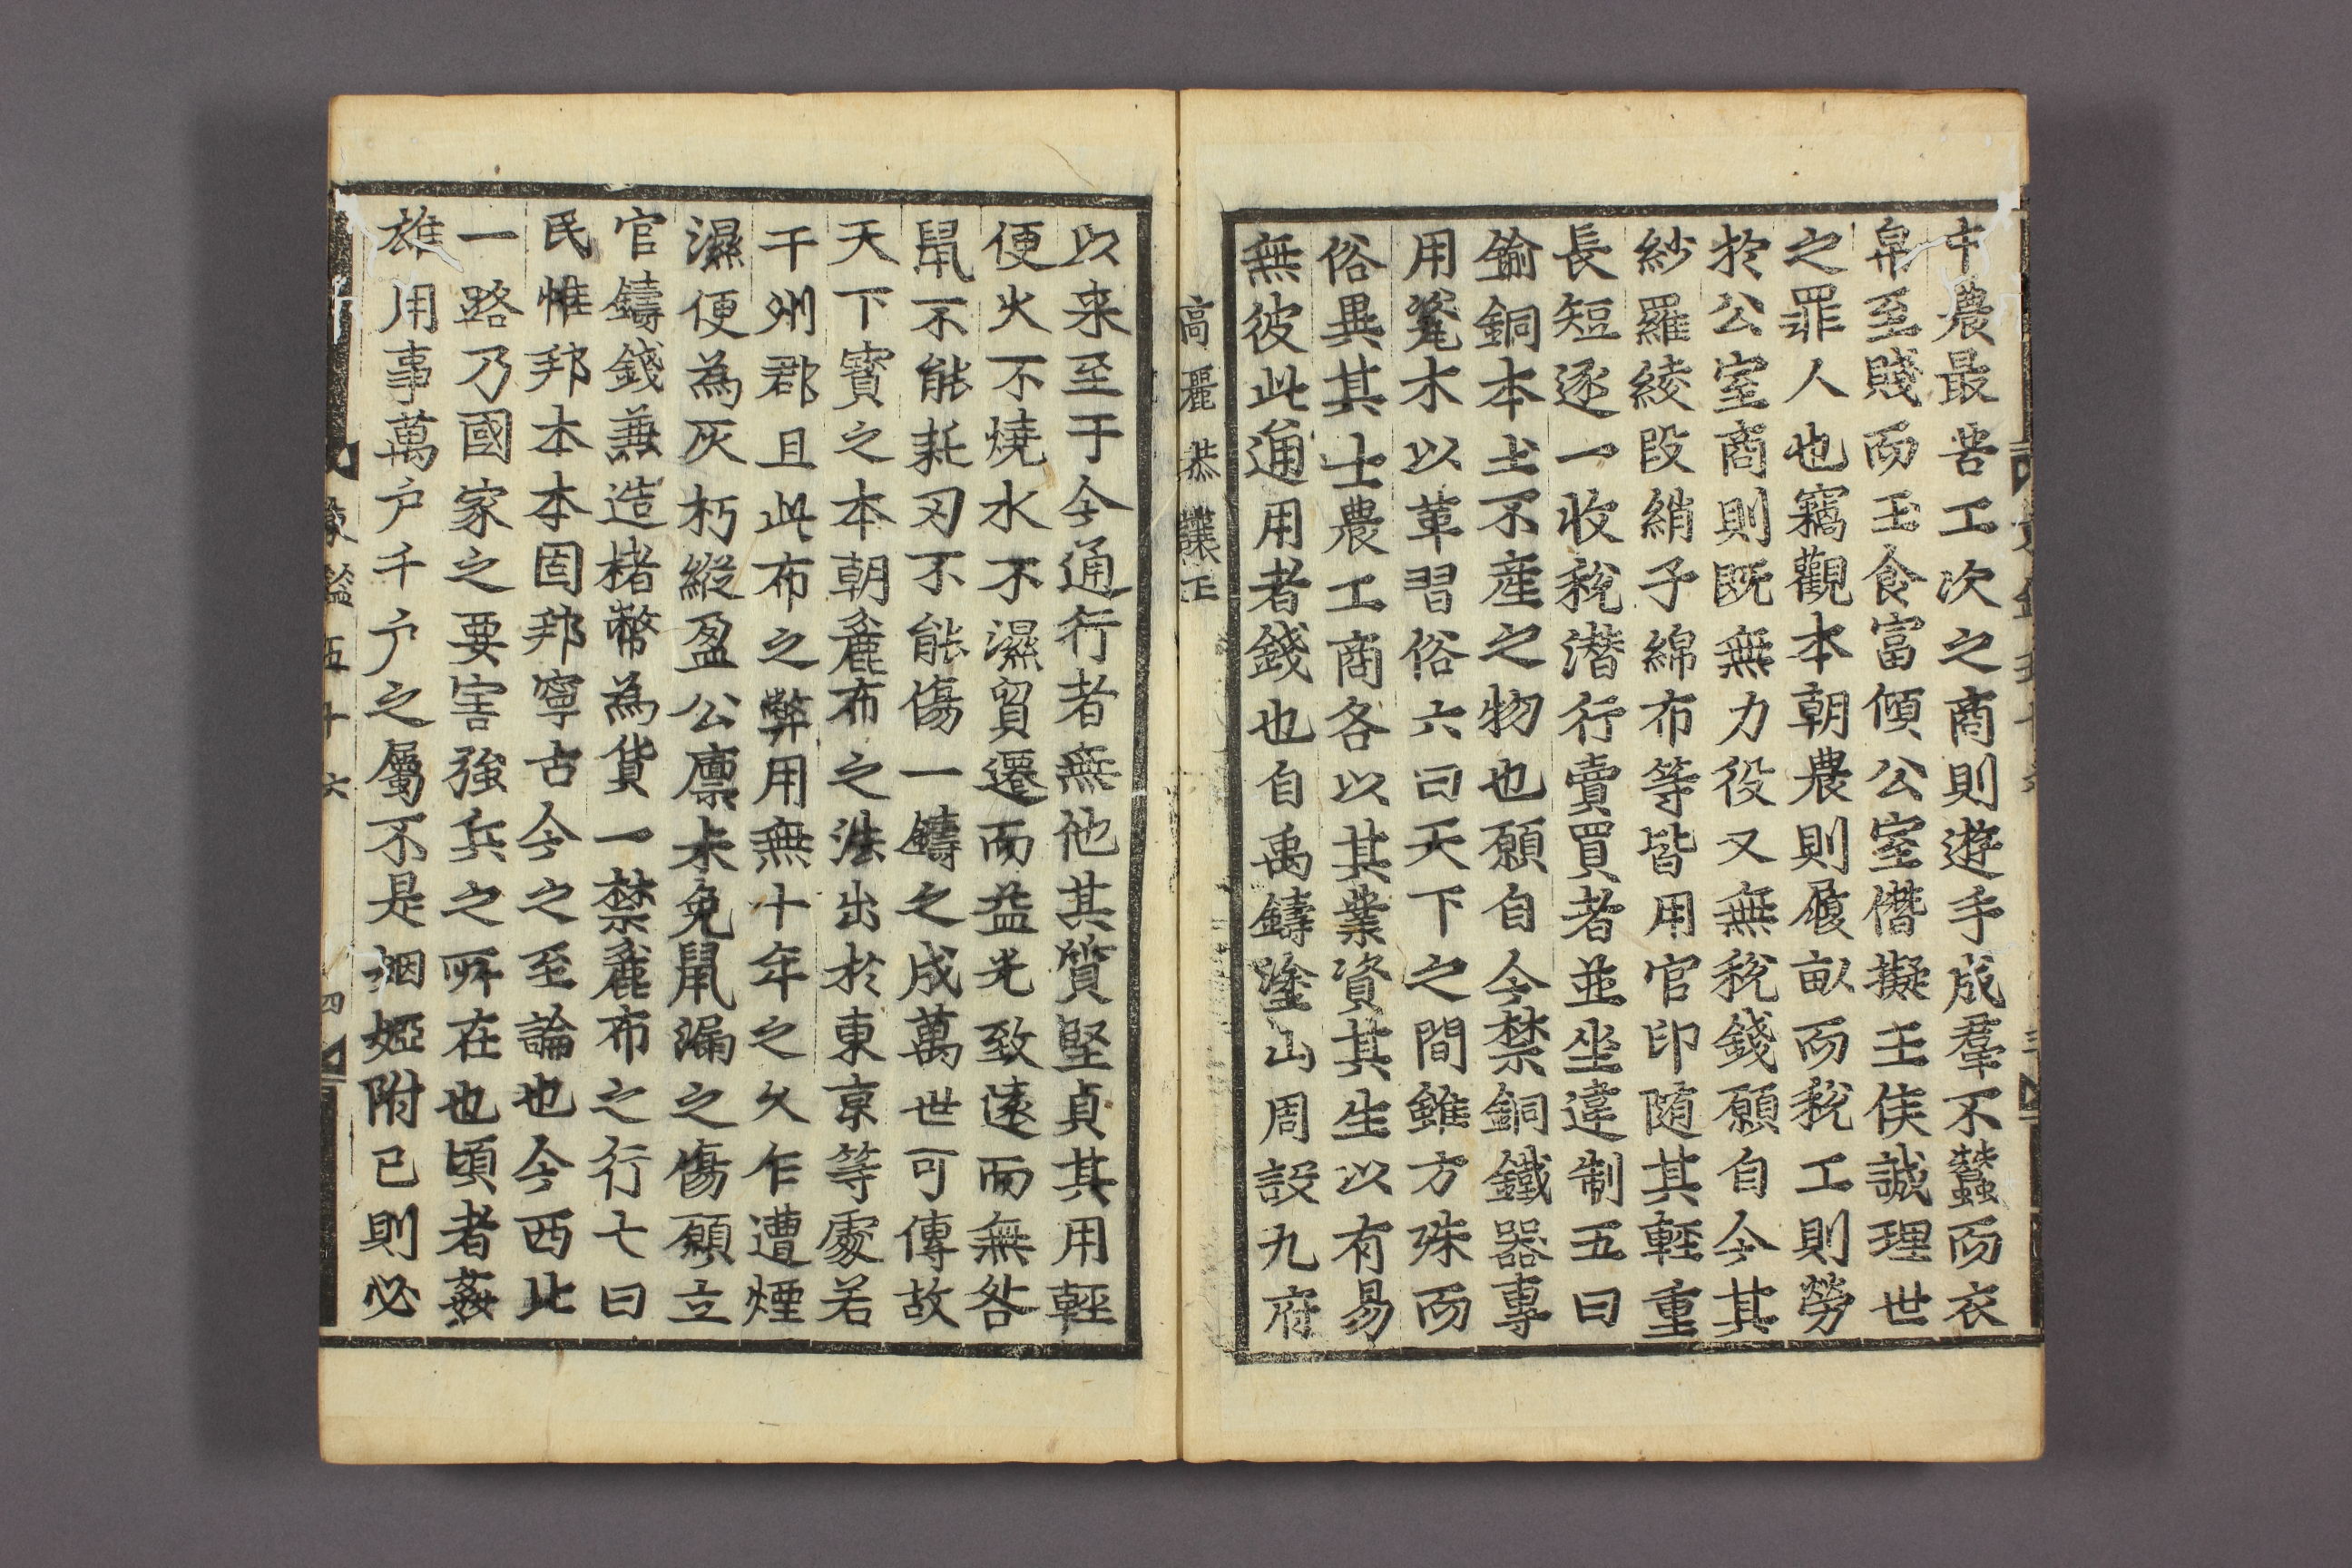 中農最苦工次之商則遊手成羣不蠶而衣
帛至賤而玉食富傾公室僭擬王侯誠理世
之罪人也竊觀本朝農則履畝而稅工則勞
於公室商則旣無力役又無稅錢願自今其
紗羅綾段綃子綿布等皆用官印隨其輕重
長短逐一收稅潛行賣買者並坐違制五曰
鍮銅本土不産之物也願自今禁銅鐵器專
用瓷木以革習俗六曰天下之間雖方殊而
俗異其士農工商各以其業資其生以有易
無彼此通用者錢也自禹鑄塗山周設九府
高麗恭讓王
以來至于今通行者無他其質堅貞其用輕
便火不燒水不濕貿遷而益光致遠而無咎
鼠不能耗刃不能傷一鑄之成萬世可傳故
天下寳之本朝麁布之法出於東京等處若
干州郡且此布之弊用無十年之久乍遭煙
濕便為灰朽縱盈公廩未免鼠漏之傷願立
官鑄錢兼造楮幣為貨一禁麁布之行七曰
民惟邦本本固邦寧古今之至論也今西北
一路乃國家之要害強兵之所在也頃者姦
雄用事萬户千户之屬不是姻婭附已則必
鑑五十六
四